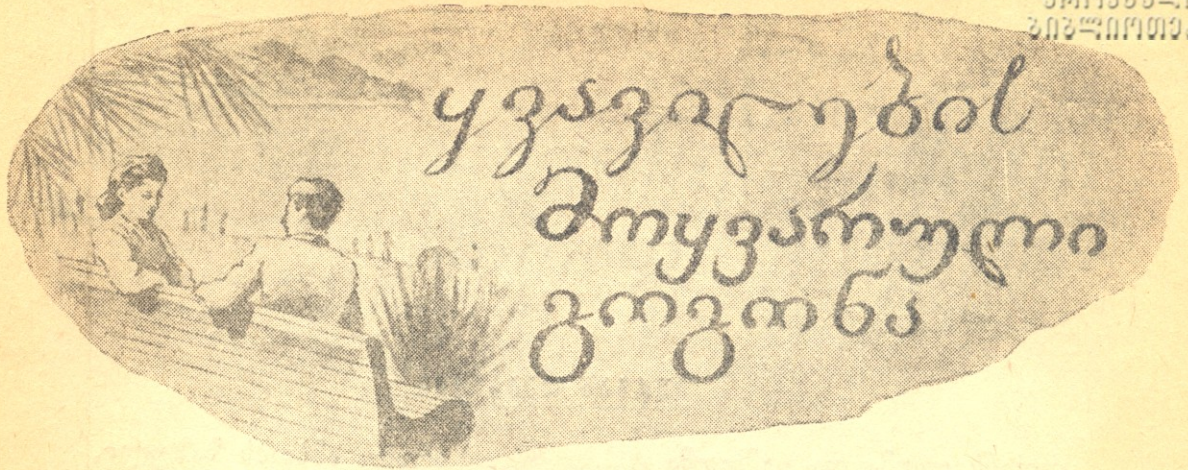 ყვავილების
მოყვარული
გოგონა